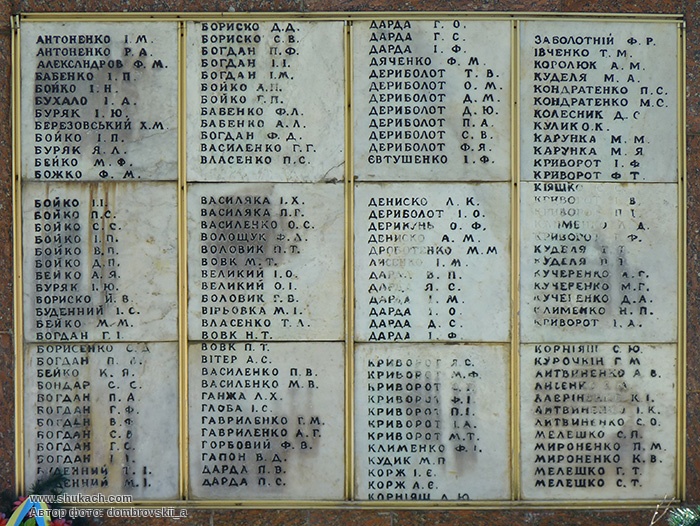 АНТОНЕНКО І.М.
АНТОНЕНКО Р.А.
АЛЕКСАНДРОВ Ф.М.
БАБЕНКО І.П.
БОЙКО І.Н.
БУХАЛО І.А.
БУРЯК І.Ю.
БЕРЕЗОВСЬКИЙ Х.М
БОЙКО І.П.
БУРЯК Я.Л.
БЕЙКО М.Ф.
БОЖКО Ф.М.
БОЙКО І.І.
БОЙКО П.С.
БОЙКО С.С.
БОЙКО І.П.
БОЙКО В.П.
БОЙКО Д.П.
БЕЙКО А.Я.
БУРЯК І.Ю.
БОРИСКО Й.В.
БУДЕННИЙ І.С.
БЕЙКО М.М.
БОГДАН Г.І.
БОРИСЕНКО С.Д
БОГДАН П.
БЕЙКО К.Я.
БОНДАР С.С.
БОГДАН П.А.
БОГДАН Г.Ф.
БОГДАН В.Я
БОГДАН С.В
БОГДАН Г.С.
БОГДАН
БУДЕННИЙ І.
БУДЕННИЙ М.І.
БОРИСКО Д.Д.
БОРИСКО С.В.
БОГДАН П.Ф.
БОГДАН І.І.
БОГДАН І.М.
БОЙКО А.П.
БОЙКО Г.П.
БАБЕНКО Ф.Л.
БАБЕНКО А.Л.
БОГДАН Ф.Д.
ВАСИЛЕНКО Г.Г.
ВЛАСЕНКО П.С.
ВАСИЛЯКА І.Х.
ВАСИЛЯКА П.Г.
ВАСИЛЕНКО О.С.
ВОЛОЩУК Ф.Л.
ВОЛОВИК П.Т.
ВОВК М.Т.
ВЕЛИКИЙ І.О.
ВЕЛИКИЙ О.І.
БОЛОВИК Г.В.
ВІРЬОВКА М.І.
ВЛАСЕНКО Т.Л.
ВОВК Н.Т.
ВОВК П.Т.
ВІТЕР А.С.
ВАСИЛЕНКО П.В.
ВАСИЛЕНКО М.В.
ГАНЖА Л.Х.
ГЛОБА І.С.
ГАВРИЛЕНКО Г.М.
ГАВРИЛЕНКО А.Г.
ГОРБОВИЙ Ф.В.
ГАПОН В.Д.
ДАРДА П.В.
ДАРДА П.С.
ДАРДА Г.О.
ДАРДА Г.С.
ДАРДА І.Ф.
ДЯЧЕНКО Ф.М.
ДЕРИБОЛОТ Т.В.
ДЕРИБОЛОТ О.М.
ДЕРИБОЛОТ Д.М.
ДЕРИБОЛОТ Д.Ю.
ДЕРИБОЛОТ П.А.
ДЕРИБОЛОТ С.В.
ДЕРИБОЛОТ Ф.Я.
ЄВТУШЕНКО І.Ф.
ДЕНИСКО Л.К.
ДЕРИБОЛОТ І.О.
О.Ф.
ДЕНИСКО А.М.
ДРОБОТЕНКО М.М
ЛИСЕНКО І.М.
ДАРДА В.П.
ДАРДА Я.С.
ДАРДА І.М.
ДАРДА І.О.
ДАРДА Д.С.
ДАРДА І.Ф.
КРИВОРОТ Я.С.
КРИВОРОТ М.Ф.
КРИВОРОТ Ф.І.
КРИВОРОТ П.І.
КРИВОРОТ І.А.
КРИВОРОТ М.Т.
КЛИМЕНКО Ф.І.
КУДИК М.П
КОРЖ І.Є.
КОРЖ Л.Г.
КОРНІЯШ
ЗАБОЛОТНІЙ Ф.Р.
ІВЧЕНКО Т.М.
КОГОЛЮК А.М.
КУДЕЛЯ М.А.
КОНДРАТЕНКО П.С.
КОНДРАТЕНКО М.С.
КОЛЕСНИК Д.С
КУЛИК О.К.
КАРУНКА М.М.
КАРУНКА М.Я
КРИВОРОТ І.Ф
КРИВОРОТ Ф.Т.
КІЯШКО
В.
КРИВОРОТ
Д.
КРИВОРОТ Ф.
КУДЕЛЯ
КУДЕЛЯ
КУЧЕРЕНКО А.Г.
КУЧЕРЕНКО М.Г.
КУЧЕРЕНКО Д.А.
КЛИМЕНКО Н.П
КРИВОРОТ І.А.
КОРНІЯШ С.Ю.
КУРОЧКІН Г.М
ЛИТВИНЕНКО А.В.
ЛИСЕНКО
К.І.
ЛИТВИНЕНКО І.К.
ЛИТВИНЕНКО С.О
МЕЛЕШКО С.П.
МИРОНЕНКО П.М.
МИРОНЕНКО К.В.
МЕЛЕШКО Г.Т.
МЕЛЕШКО С.Т.
www.shukach.com
Автор фото: dombrovskii_a